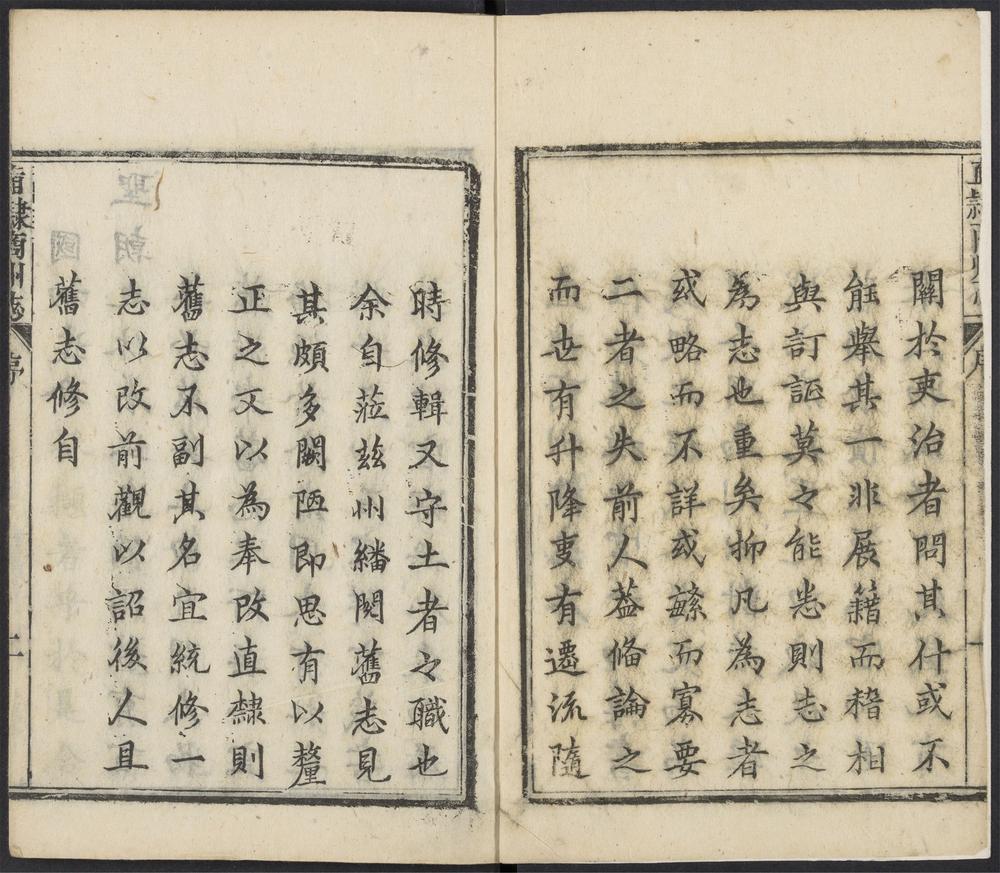 關於吏治者問其什或不
能舉其一非展籍而稽相
與訂証莫之能悉則志之
為志也重矣抑凡為志者
或略而不詳或繇而寡要
二者之失前人葢俻論之
而世有升降吏有遷流隨
時修輯又守土者之職也
余自蒞茲州繙閱舊志見
其頗多闕陋即思有以釐
正之又以為奉改直隸則
舊志不副其名宜統修一
志以改前觀以詔後人且
舊志修自
直隸商州志 序 二